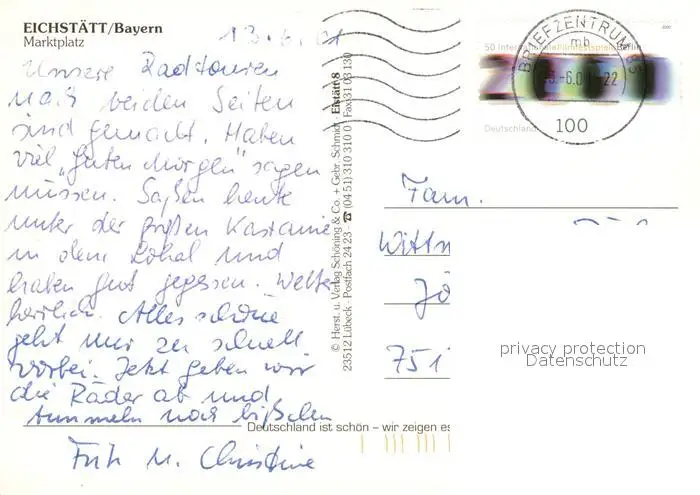 EICHSTÄTT/Bayern
Marktplatz
13.6.01
Unsere Radtouren
nach beiden Seiten
sind gemacht. Haben
viel "guten Morgen" sagen
müssen. Saßen heute
unter der großen Kastanie
in dem Lokal und
haben gut gegessen. Wetter
herrlich. Alles schöne
geht nur zu schnell
vorbei. Jetzt geben wir
die Räder ab und
bummeln noch bißchen
Fritz u. Christine
© Herst. u. Verlag Schöning & Co. + Gebr. Schmidt, Eistätt 8
23512 Lübeck · Postfach 24 23 ☎ (04 51) 310 310 Fax 31 03 130
Deutschland ist schön – wir zeigen es
50 Internationale Filmfestspiele Berlin
Deutschland
100
BRIEFZENTRUM 85
mb
-6.0 -22
Fam.
Wittm
Jö
751
privacy protection
Datenschutz